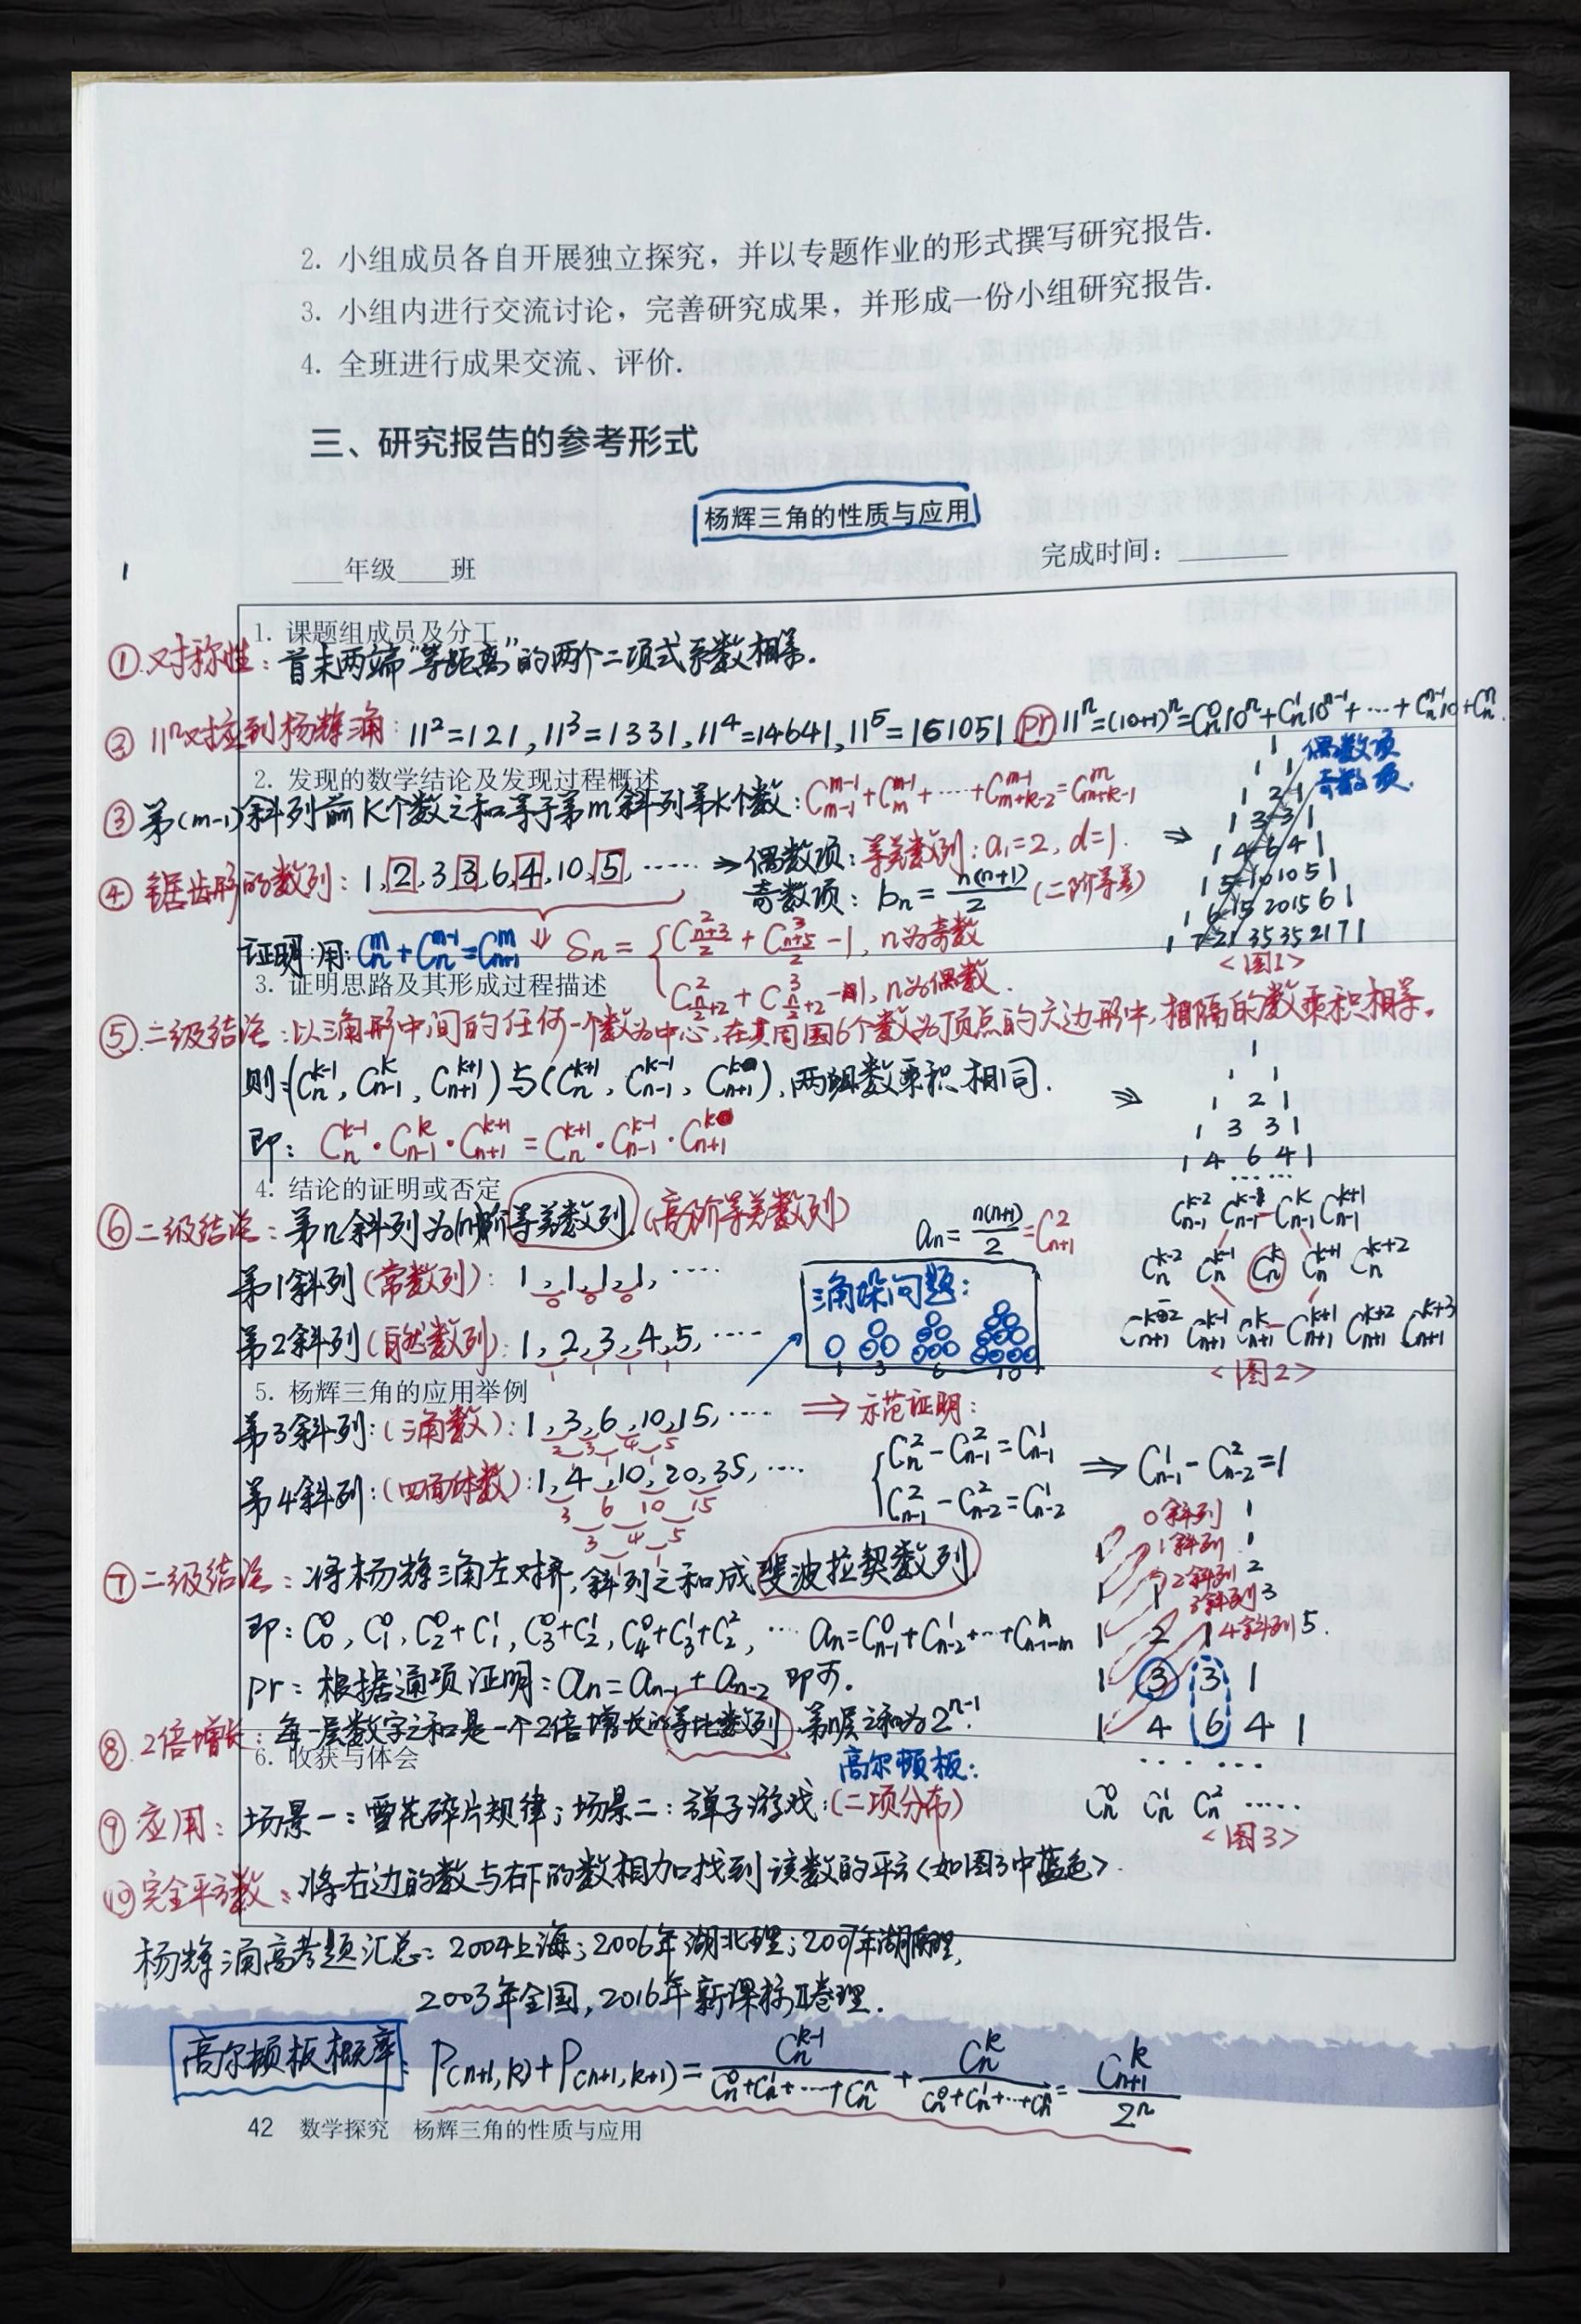 2. 小组成员各自开展独立探究，并以专题作业的形式撰写研究报告.
3. 小组内进行交流讨论，完善研究成果，并形成一份小组研究报告.
4. 全班进行成果交流、评价.
三、研究报告的参考形式
杨辉三角的性质与应用
____年级____班 完成时间：________
1. 课题组成员及分工
① 对称性：首末两端“等距离”的两个二项式系数相等.
② 11ⁿ对应到杨辉三角：11²=121, 11³=1331, 11⁴=14641, 11⁵=161051 (pr) 11ⁿ=(10+1)ⁿ=Cₙ⁰10ⁿ+Cₙ¹10ⁿ⁻¹+…+Cₙⁿ⁻¹10+Cₙⁿ.
2. 发现的数学结论及发现过程概述
③ 第(m-1)斜列前K个数之和等于第m斜列第K个数：C_{m-1}^{m-1}+C_m^{m-1}+……+C_{m+k-2}^{m-1}=C_{m+k-1}^m
④ 锯齿形的数列：1, 2, 3, 3, 6, 4, 10, 5, …… ⇒ 偶数项：等差数列：a₁=2, d=1.
奇数项：bₙ=n(n+1)/2 (二阶等差)
证明：用：C_n^m+C_n^{m-1}=C_{n+1}^m ⇓ Sₙ= { C_{(n+3)/2}^2+C_{(n+5)/2}^3-1, n为奇数
C_{n/2+2}^2+C_{n/2+2}^3-1, n为偶数.
偶数项
奇数项.
⇒
1
1 1
1 2 1
1 3 3 1
1 4 6 4 1
1 5 10 10 5 1
1 6 15 20 15 6 1
1 7 21 35 35 21 7 1
<图1>
3. 证明思路及其形成过程描述
⑤ 二级结论：以三角形中间的任何一个数为中心，在其周围6个数为顶点的六边形中，相隔的数乘积相等.
则：(C_n^{k-1}, C_{n-1}^k, C_{n+1}^{k+1})与(C_n^{k+1}, C_{n-1}^{k-1}, C_{n+1}^k), 两组数乘积相同.
即：C_n^{k-1}·C_{n-1}^k·C_{n+1}^{k+1}=C_n^{k+1}·C_{n-1}^{k-1}·C_{n+1}^k
⇒
1
1 1
1 2 1
1 3 3 1
1 4 6 4 1
……
C_{n-1}^{k-2} C_{n-1}^{k-1} C_{n-1}^k C_{n-1}^{k+1}
C_n^{k-2} C_n^{k-1} C_n^k C_n^{k+1} C_n^{k+2}
C_{n+1}^{k-2} C_{n+1}^{k-1} C_{n+1}^k C_{n+1}^{k+1} C_{n+1}^{k+2} C_{n+1}^{k+3}
<图2>
4. 结论的证明或否定
⑥ 二级结论：第n斜列为 阶等差数列.(高阶等差数列) aₙ=n(n+1)/2=C_{n+1}^2
第1斜列(常数列)：1, 1, 1, 1, ……
0 0 0
第2斜列(自然数列)：1, 2, 3, 4, 5, ……
1 1 1 1
三角垛问题：
1 3 6 10
5. 杨辉三角的应用举例
第3斜列：(三角数)：1, 3, 6, 10, 15, ……
2 3 4 5
1 1 1
第4斜列：(四面体数)：1, 4, 10, 20, 35, ……
3 6 10 15
3 4 5
1 1
⇒ 示范证明：
{ C_n^2-C_{n-1}^2=C_{n-1}^1
C_{n-1}^2-C_{n-2}^2=C_{n-2}^1
⇒ C_{n-1}^1-C_{n-2}^2=1
⑦ 二级结论：将杨辉三角左对齐，斜列之和成斐波拉契数列.
即：C_0^0, C_1^0, C_2^0+C_1^1, C_3^0+C_2^1, C_4^0+C_3^1+C_2^2, … aₙ=C_{n-1}^0+C_{n-2}^1+…+C_{n-1-m}^m
pr：根据通项证明：aₙ=aₙ₋₁+aₙ₋₂ 即可.
⑧ 2倍增长：每一层数字之和是一个2倍增长的等比数列.第n层之和为2ⁿ⁻¹.
0斜列 1
1斜列 1
2斜列 2
3斜列 3
4斜列 5.
1
1 1
1 2 1
1 3 3 1
1 4 6 4 1
……
C_n^0 C_n^1 C_n^2 ……
<图3>
6. 收获与体会
高尔顿板：
⑨ 应用：场景一：雪花碎片规律；场景二：弹子游戏：(二项分布)
⑩ 完全平方数：将右边的数与右下的数相加找到该数的平方<如图3中蓝色>.
杨辉三角高考题汇总：2004上海；2006年湖北理；2007年湖南理,
2003年全国，2016年新课标Ⅱ卷理.
高尔顿板概率：P(n+1,k)+P(n+1,k+1)=C_n^{k-1}/(C_n^0+C_n^1+……+C_n^n)+C_n^k/(C_n^0+C_n^1+…+C_n^n)=C_{n+1}^k/2ⁿ
42 数学探究 杨辉三角的性质与应用